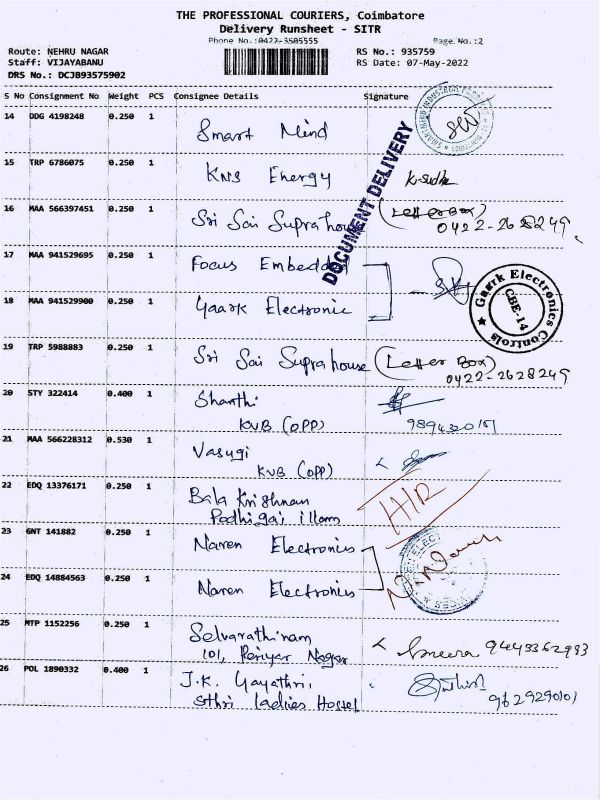 THE PROFESSIONAL COURIERS, Coimbatore
Delivery Runsheet - SITR
Phone No.:0422-3505555 Page No.:2
Route: NEHRU NAGAR RS No.: 935759
Staff: VIJAYABANU RS Date: 07-May-2022
DRS No.: DCJB93575902
S No Consignment No Weight PCS Consignee Details Signature
14 DDG 4198248 0.250 1 Smart Mind
15 TRP 6786075 0.250 1 KNS Energy K. Sudha
16 MAA 566397451 0.250 1 Sri Sai Supra house (Letter Box)
0422-2628249
DOCUMENT DELIVERY
17 MAA 941529695 0.250 1 Focus Embedded
18 MAA 941529900 0.250 1 Gaark Electronic
Gaark Electronics Controls
CBE-14
19 TRP 5988883 0.250 1 Sri Sai Supra house (Letter Box)
0422-2628249
20 STY 322414 0.400 1 Shanthi
KVB (OPP)
21 MAA 566228312 0.530 1 Vasugi
KVB (OPP)
22 EDQ 13376171 0.250 1 Bala Krishnan
Podhigai illam
23 GNT 141882 0.250 1 Naren Electronics
24 EDQ 14884563 0.250 1 Naren Electronics
25 MTP 1152256 0.250 1 Selvarathinam
101, Periyar Nagar 9445362993
26 POL 1890332 0.400 1 J.K. Gayathri,
Sthri ladies Hostel 9629290101